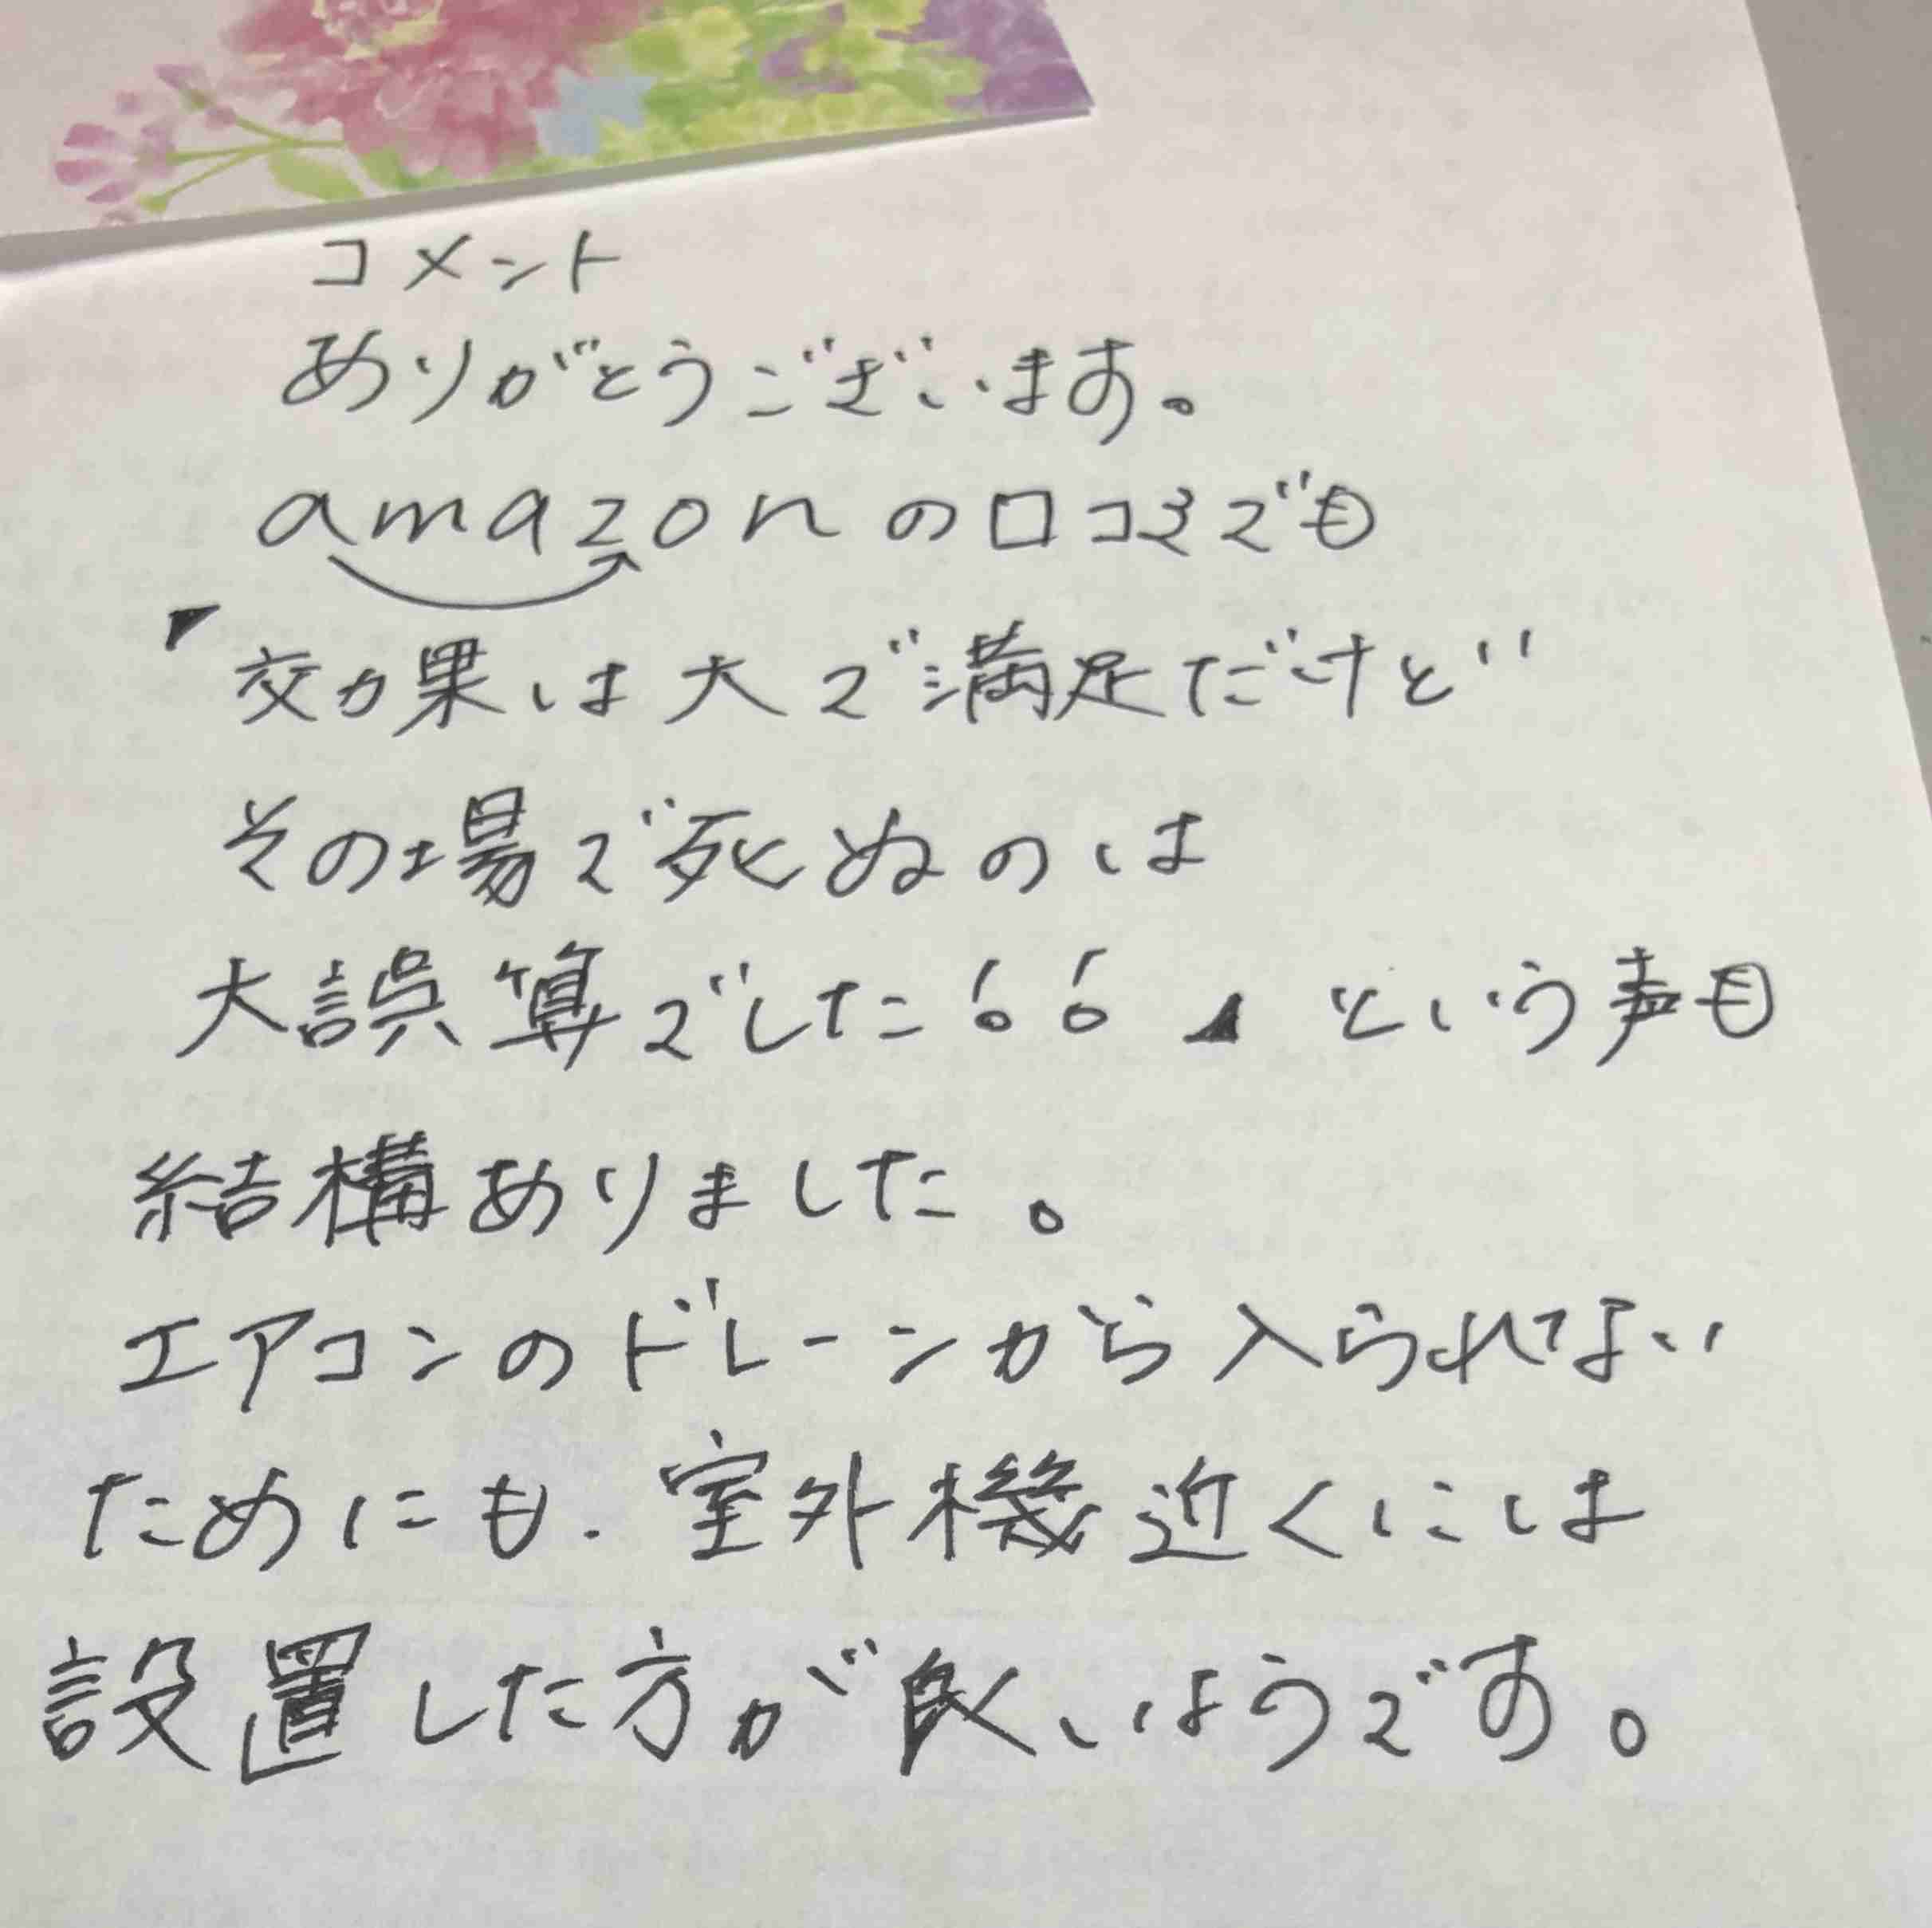 コメント
ありがとうございます。
amazonの口コミでも
「効果は大で満足だけど
その場で死ぬのは
大誤算でした!!」という声も
結構ありました。
エアコンのドレーンから入られない
ためにも、室外機近くには
設置した方が良いようです。